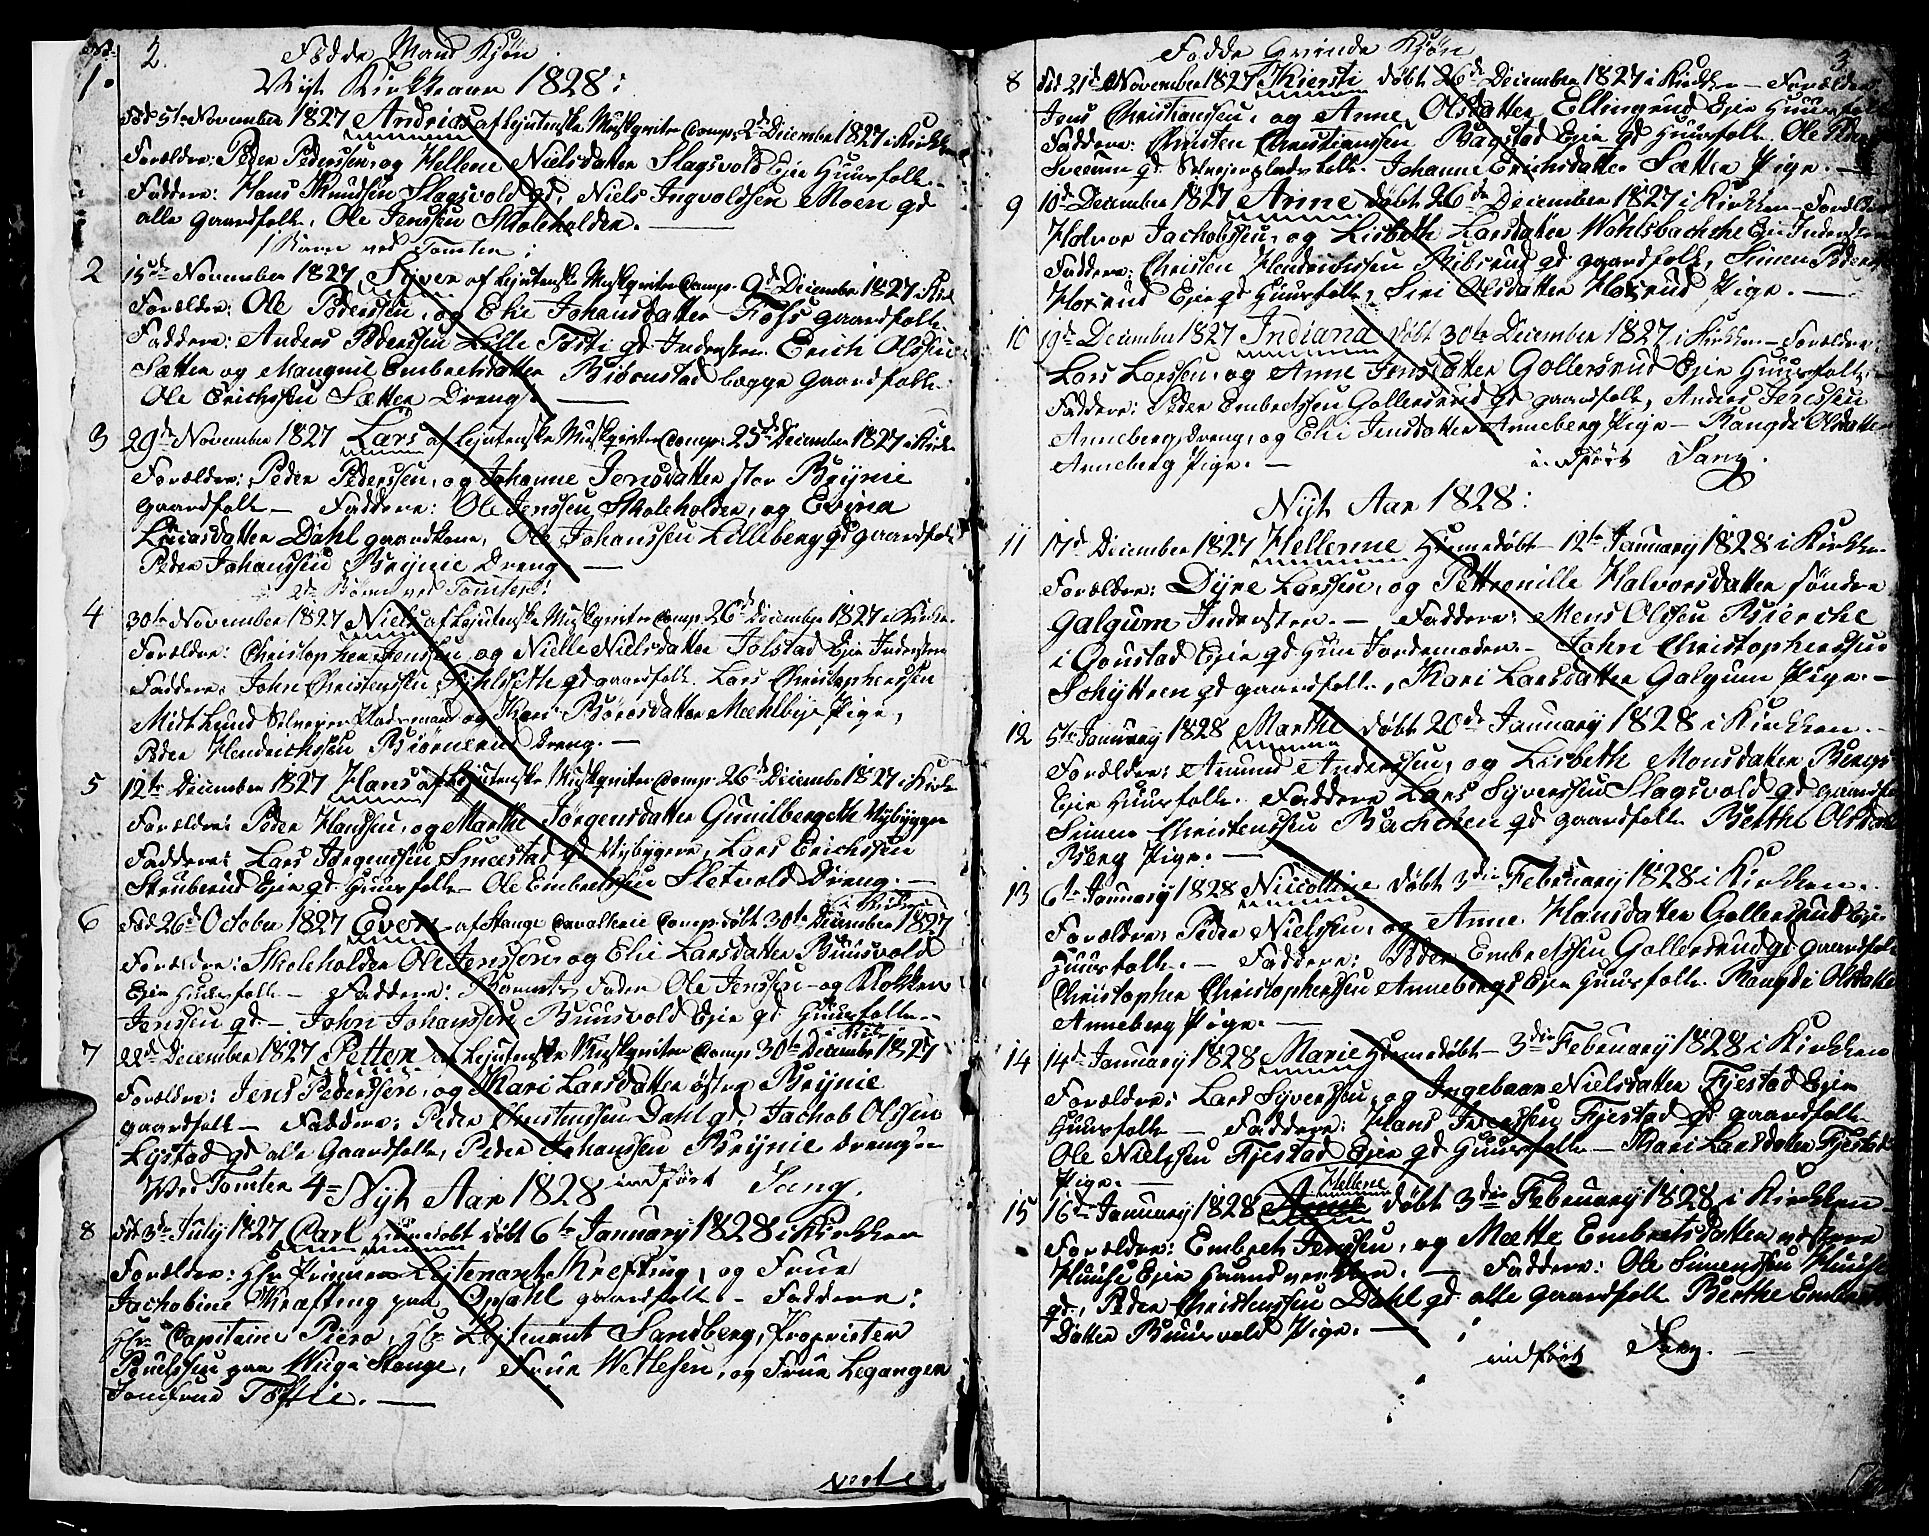 2.
Fødde Mand Kjøn
Nyt Kirkeaar 1828:
1. Fød 5te November 1827 Andrias af Lejutenske Muskqviter Comp. 2d December 1827 i Kirken
Forældre: Peder Pederssen, og Hellene Nielsdatter Slagsvold Eje Huusfolk.
Faddere: Hans Knudsen Slagsvold qd, Niels Ingvoldsen Moen qd
alle gaardfolk, Ole Jenssen Skoleholder.
1 Barn ved Tomten:
2 15de November 1827 Syver af Lejutenske Muskqviter Comp. 9d December 1827 i Kirk
Forældre: Ole Pederssen, og Eli Johansdatter Fohs gaardfolk.
Faddere: Anders Pederssen Lille Tøsti qd Inderster. Erich Olssen
Sætter og Mangnil Embretsdatter Biørnstad begge gaardfolk.
Ole Erichssen Sætter Dreng.
3 29d November 1827 Lars af Lejutenske Muskqviter Comp. 25d December 1827 i Kirk
Forældre: Peder Pederssen, og Johanne Jensdatter stor Brynie
gaardfolk – Faddere: Ole Jenssen Skoleholder, og Evina
Dahl gaardkone, Ole Johanssen Lilleberg qd gaardfolk
Peder Johanssen Brynie Dreng
2de Børn ved Tomten:
4 30te November 1827 Niels af Lejutenske Muskqviter Comp. 26d December 1827 i Kirk
Forældre: Christopher Jenssen, og Nielle Nielsdatter Jolstad Eje Inderster
Faddere: John Christenssen qd gaardfolk. Lars Christopherssen
Midt Lund Selvejer Pladsmand og Kari Børresdatter Mæhlbye Pige,
Peder Hendrichssen Biørnerud Dreng.
5 12te December 1827 Hans af Lejutenske Muskqviter Comp. 26d December 1827 i Kirk
Forældre: Peder Hanssen, og Marthe Jørgensdatter Nybygger
Faddere: Lars Jørgenssen Smeestad qd Nybyggere, Lars Erichssen
Struberud Eje qd Huusfolk – Ole Embretssen Sletvold Dreng.
i Kirken
6 Fød 26d October 1827 Even af Stange Cavallerie Comp. døbt 30te December 1827
Forældre: Skoleholder Ole Jenssen, og Eli Larsdatter Buusvold
Eje Huusfolk – Faddere: Barnets Fader Ole Jenssen – og Klokker
Jenssen qd. – John Johanssen Buusvold Eje qd Huusfolk.
i Kirk
7 22d December 1827 Petter af Lejutenske Muskqviter Comp 30te December 1827
Forældre: Jens Pederssen, og Kari Larsdatter østre Brynie
gaardfolk – Faddere: Peder Christenssen Dahl qd, Jachob Olssen
Lystad qd alle Gaardfolk, Peder Johanssen Brynie Dreng.
Ved Tomten 4 = Nyt Aar 1828 indført Sang.
8 Fød 3d July 1827 Carl Hiemmedøbt døbt 6te January 1828 i Kirken
Forældre: Hr Premier Lejtenant Krefting, og Frue
Jachobine Kræfting paa Opsahl gaardfolk – Faddere:
Hr Capitaine Piero, Hr Lejtenant Sandberg, Proprieter
paa Wiiga Stange, Frue Wetlesen, og Frue Legangen
Jomfrue Toftie.
verte
3.
Fødde Qvinde Kjøn
8 Fød 21d November 1827 Kiersti døbt 26d December 1827 i Kirken – Forældre
Jens Christianssen, og Anne Olsdatter Ellingrud Eje Huusfolk
Faddere: Christen Christianssen Bagstad Eje qd Huusfolk. Ole
Sveeum qd Selvejerpladsfolk. Johanne Erichsdatter Sætter Pige.
9 10d December 1827 Anne døbt 26de December 1827 i Kirken – Forældre
Halvor Jachobssen, og Lisbeth Larsdatter Wohlsbachche Eje Inderster
Faddere: Christen Hendrichssen Ribsrud qd gaardfolk, Simen Peders
Horsrud Eje qd Huusfolk, Siri Olsdatter Horsrud Pige.
10 19de December 1827 Indiana døbt 30te December 1827 i Kirken – Forældre
Lars Larssen, og Anne Jensdatter Gollersrud Eje Huusfolk.
Faddere: Peder Embretssen Gollersrud qd gaardfolk, Anders Jenssen
Anneberg Dreng, og Eli Jensdatter Anneberg Pige – Rangdi Olsdatter
Anneberg Pige. – indført Sang.
Nyt Aar 1828:
11 17d December 1827 Hellenne Hiemmedøbt – 12te January 1828 i Kirken
Forældre: Dyre Larssen, og Pettronille Halvorsdatter søndre
Galgum Inderster. – Faddere: Mens Olssen Bierche
i Gaustad Eje qd Hun Jordemoder. – John Christopherssen
Schyttren qd gaardfolk, Kari Larsdatter Galgum Pige. –
12 5te January 1828 Marthe døbt 20de January 1828 i Kirken.
Forældre: Amund Anderssen, og Lisbeth Monsdatter Bergs
Eje Huusfolk. Faddere Lars Syverssen Slagsvold qd gaardfolk
Simen Christenssen Bachchen qd gaardfolk Berthe Olsdatter
Berg Pige.
13 6te January 1828 Nicolline døbt 3die February 1828 i Kirken.
Forældre: Peder Nielsen, og Anne Hansdatter Gollersrud Eje
Huusfolk. – Faddere: Peder Embretssen Gollersrud qd gaardfolk
Christopher Christopherssen Annebergs Eje Huusfolk. Rangdi Olsdatter
Anneberg Pige.
14 14d January 1828 Marie Hiemmedøbt – 3die February 1828 i Kirken
Forældre: Lars Syverssen, og Ingebaar Nielsdatter Fjestad Eje
Huusfolk – Faddere: Hans Fjestad qd gaardfolk
Ole Nielssen Fjestad Eje qd Huusfolk – Kari Larsdatter Fjestad
Pige. –
Hellene
15 16d January 1828 døbt 3die February 1828 i Kirken
Forældre: Embret Jenssen, og Mætte Embretsdatter
Huuse Eje Haandverker. – Faddere: Ole Simenssen Huuse
qd, Peder Christenssen Dahl qd alle gaardfolk Berthe Embrets
Datter Buusvold Pige.
indført Sang.